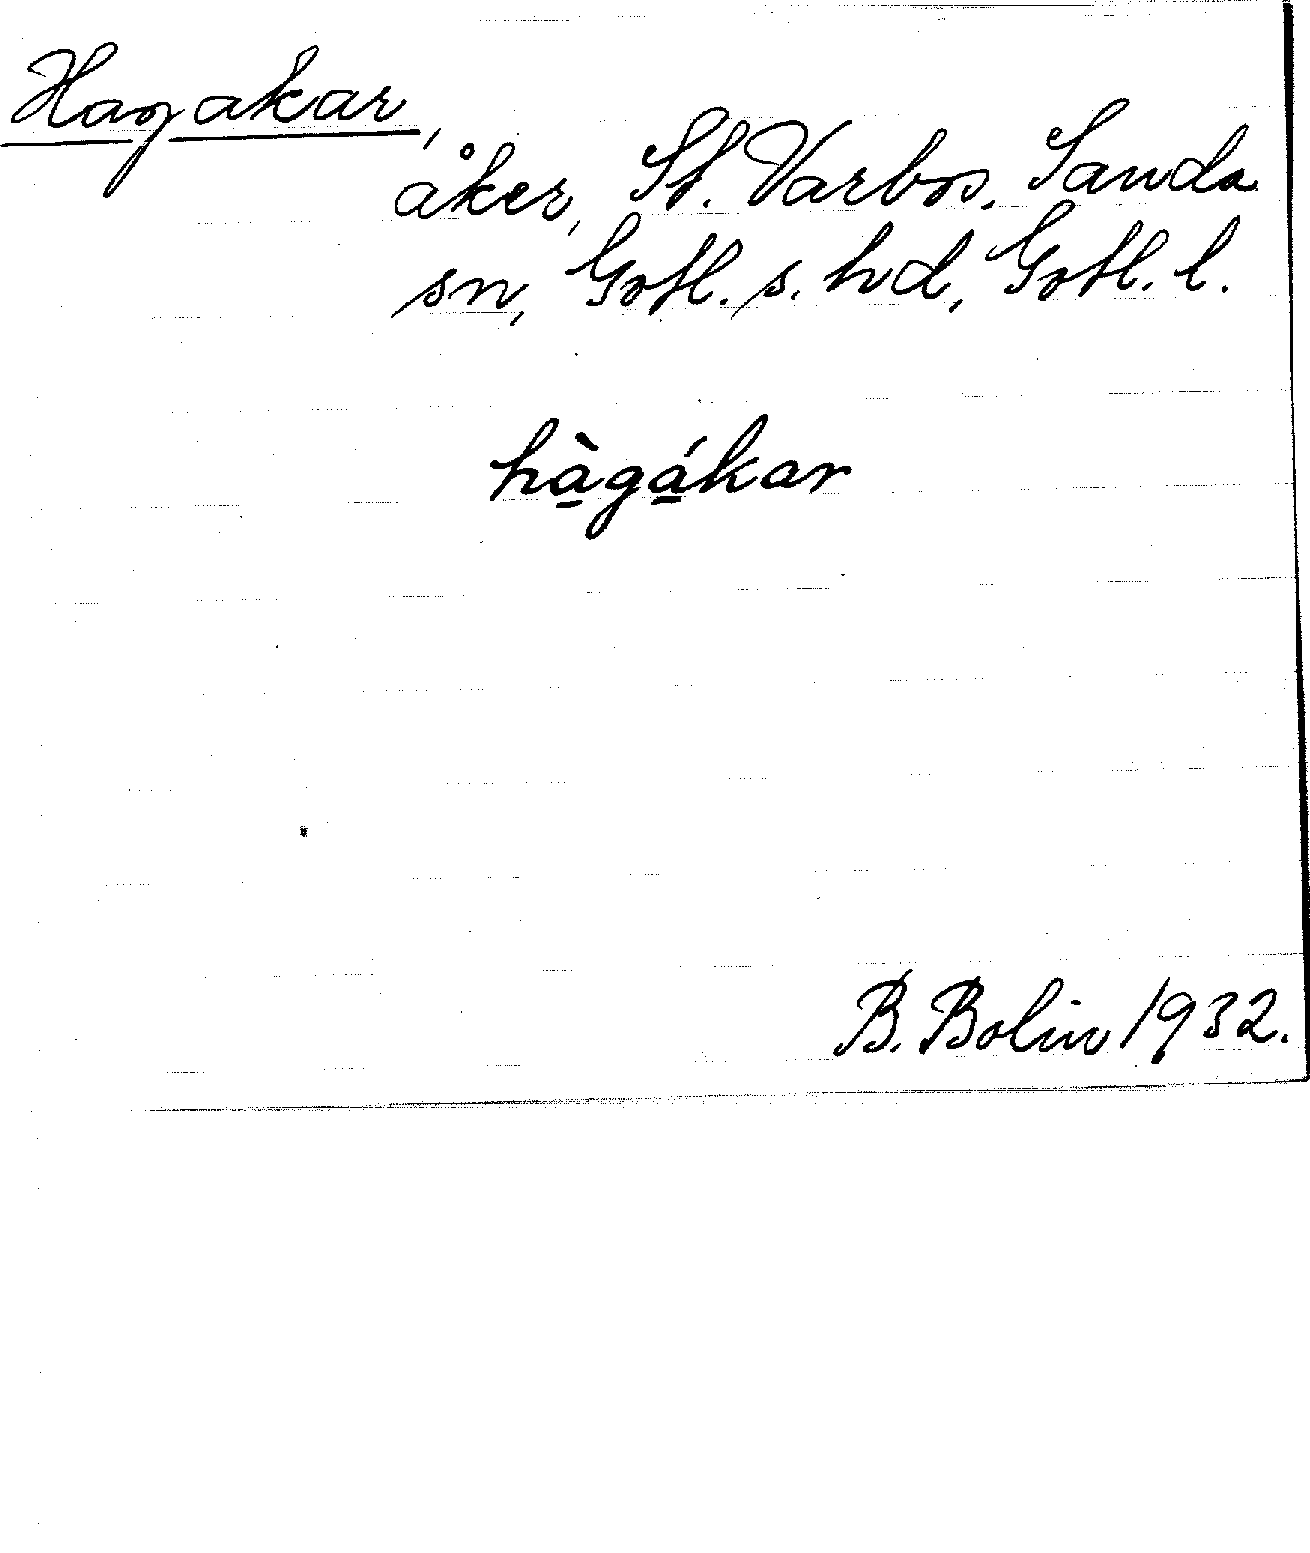 Hagakar,
åker, St. Varbos, Sanda
sn, Gotl. s. hd, Gotl. l.
hà̱gá̱kar
B. Bolin 1932.